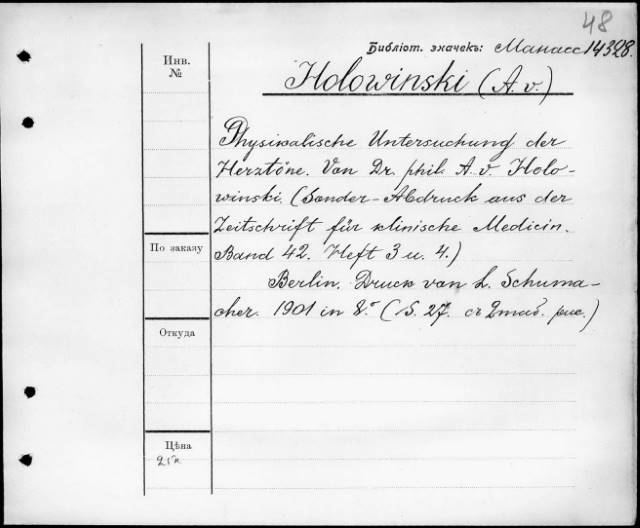 48
Библіот. значекъ: Манасс 14328.
Инв.
№
Holowinski (A. v.)
Physikalische Untersuchung der
Herztöne. Von Dr. phil. A. v. Holo-
winski. (Sonder-Abdruck aus der
Zeitschrift für klinische Medicin.
Band 42. Heft 3 u. 4.)
По заказу
Berlin. Druck von L. Schuma-
cher. 1901 in 8.º (S. 27. съ 2 таб. рис.)
Откуда
Цѣна
25к